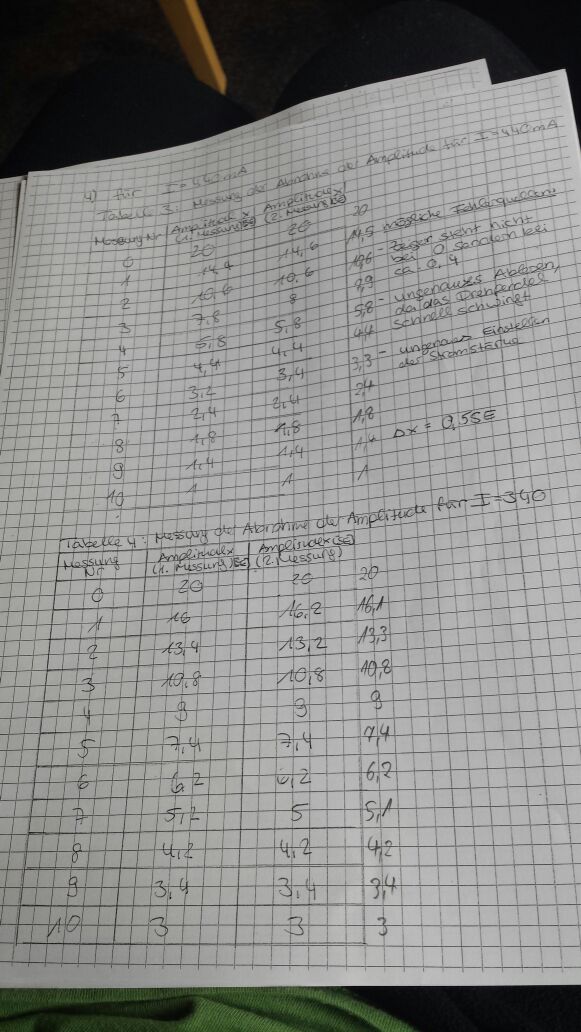 4) für I = 440mA
Tabelle 3: Messung der Abnahme der Amplitude für I = 440mA
Messung Nr Amplitude x (1. Messung)(SE) Amplitude x (2. Messung)(SE)
0 20 20 20
1 14,4 14,6 14,5 mögliche Fehlerquellen:
2 10,6 10,6 10,6 - Zeiger steht nicht
bei 0 sondern bei
3 7,8 8 7,9 ca. 0,4
4 5,8 5,8 5,8 - ungenaues Ablesen,
da das Drehpendel
5 4,4 4,4 4,4 schnell schwingt
6 3,2 3,4 3,3 - ungenaues Einstellen
der Stromstärke
7 2,4 2,4 2,4
8 1,8 1,8 1,8
9 1,4 1,4 1,4 Δx = 0,5SE
10 1 1 1
Tabelle 4: Messung der Abnahme der Amplitude für I = 340
Messung Nr Amplitude x (1. Messung)SE Amplitude x (SE) (2. Messung)
0 20 20 20
1 16 16,2 16,1
2 13,4 13,2 13,3
3 10,8 10,8 10,8
4 9 9 9
5 7,4 7,4 7,4
6 6,2 6,2 6,2
7 5,2 5 5,1
8 4,2 4,2 4,2
9 3,4 3,4 3,4
10 3 3 3